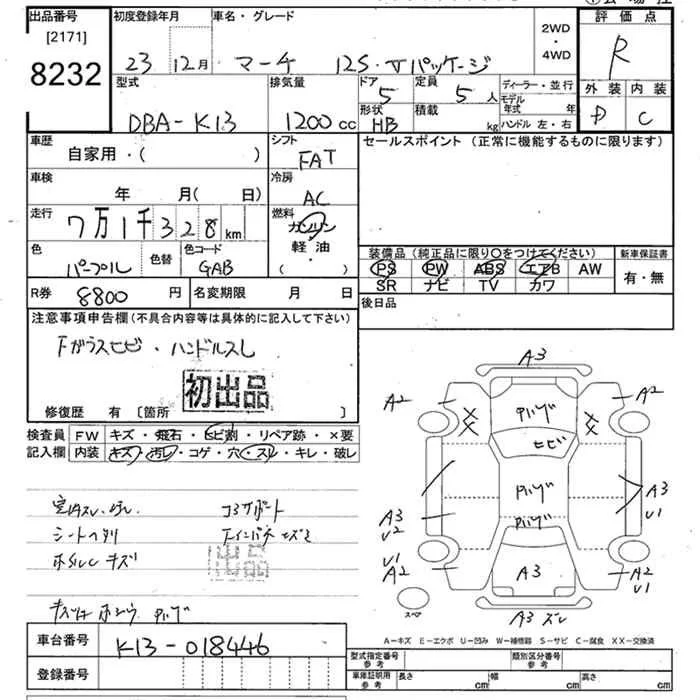 出品番号
[2171]
8232
初度登録年月
23 12月
車名・グレード
マーチ 12S・Vパッケージ
2WD
・
4WD
評価点
R
外装 内装
D C
型式
DBA-K13
排気量
1200cc
ドア
5
定員
5人
形状
HB
積載
kg
ディーラー・並行
モデル年式 年
ハンドル 左・右
車歴
自家用・( )
シフト
FAT
セールスポイント (正常に機能するものに限ります)
車検
年 月(日)
冷房
AC
走行
7万1千328km
燃料
ガソリン
軽・油
・( )
色
パープル
色替
色コード
GAB
装備品 (純正品に限り○をつけてください)
PS PW ABS エアB AW
SR ナビ TV カワ
新車保証書
有・無
R券
8800円
名変期限 月 日
後日品
注意事項申告欄 (不具合内容等は具体的に記入して下さい)
Fガラスヒビ・ハンドルスレ
初出品
修復歴 有 [箇所 ]
検査員
記入欄
FW キズ・飛石・ヒビ割・リペア跡・×要
内装 キズ・汚レ・コゲ・穴・スレ・キレ・破レ
コアサポート
出品
キズ
A3
A2
A2
ヒビ
A3
U2
A3
U1
U1
A2
A3
A2
U1
スペア
A3 ズレ
A-キズ E-エクボ U-凹み W-補修跡 S-サビ C-腐食 XX-交換済
車台番号
K13-018446
登録番号
型式指定番号
参考
類別区分番号
参考
車庫証明用
参考
長さ cm
幅 cm
高さ cm